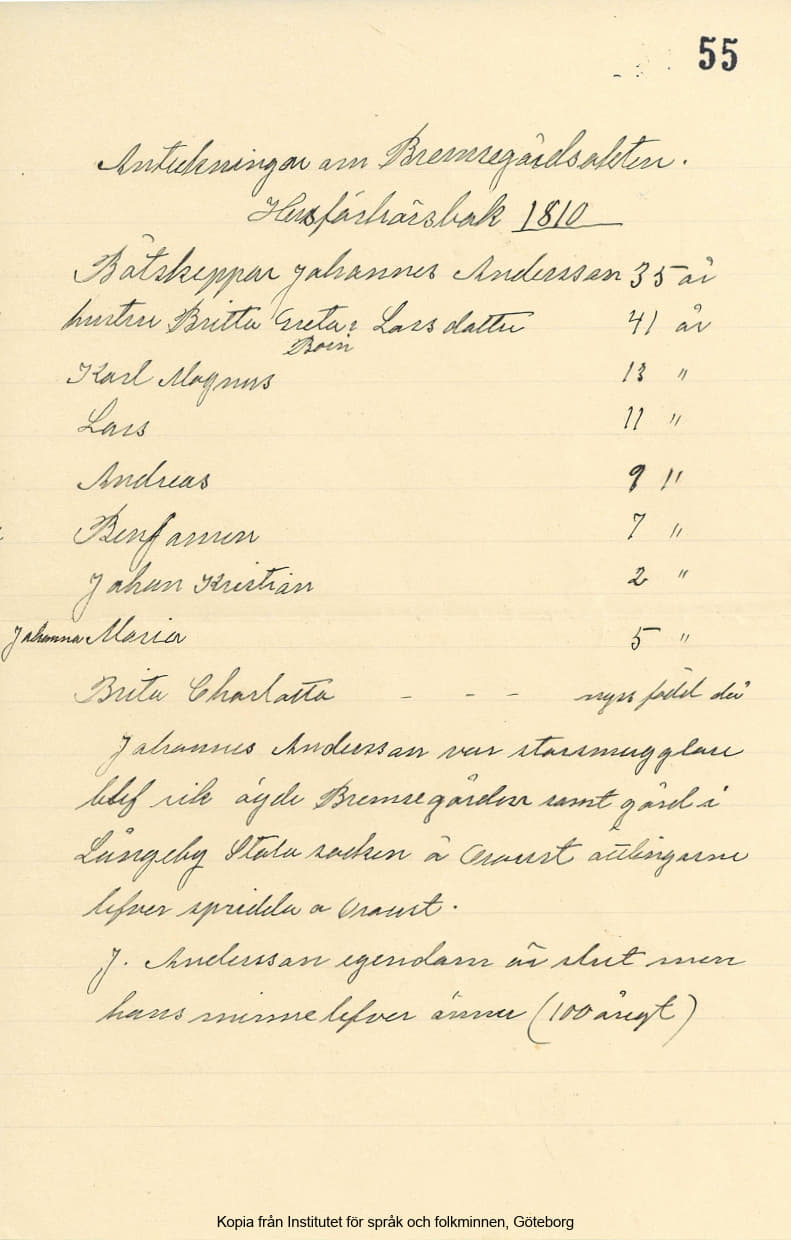 55
Anteckningar om Bremsegårdsakten.
Husförhörsbok 1810
Båtskeppar Johannes Andersson 35 år
hustru Britta Greta Lars dotter 41 år
Barn
Karl Magnus 13 "
Lars 11 "
Andreas 9 "
Benjamen 7 "
Johan Kristian 2 "
Johanna Maria 5 "
Brita Charlotta - - - nyss född då
Johannes Andersson var storsmugglare
blef rik ägde Bremsegården samt gård i
Långeby Stala socken å Oroust ättlingarne
lefver spridda å Oroust.
J. Andersson egendom är slut men
hans minne lefver ännu (100 årigt)
Kopia från Institutet för språk och folkminnen, Göteborg